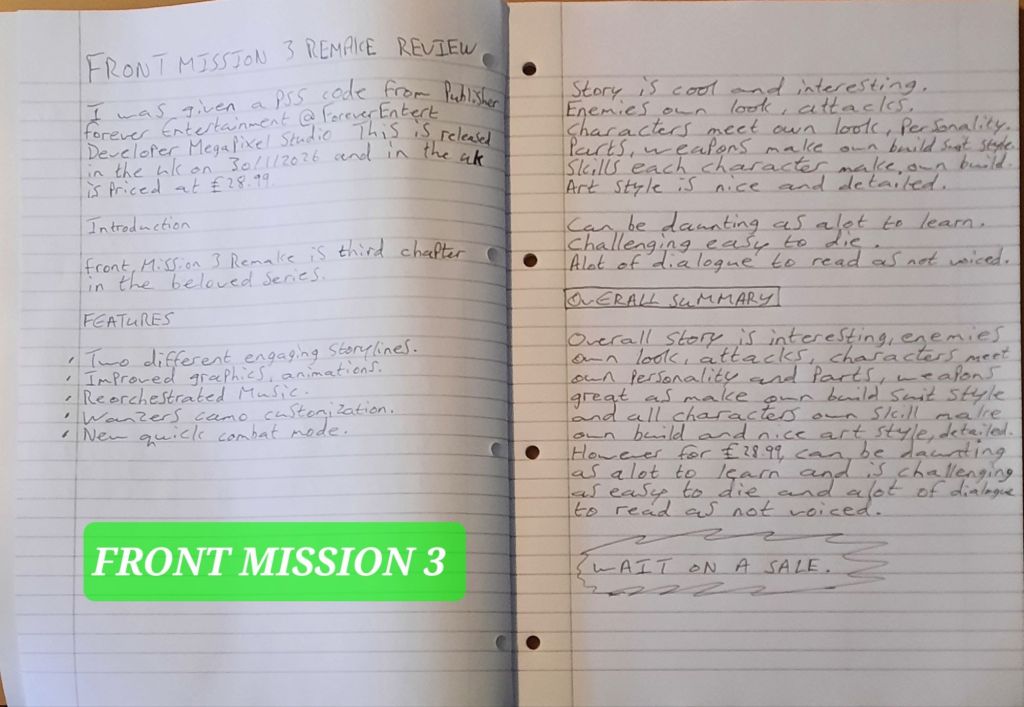 FRONT MISSION 3 REMAKE REVIEW
I was given a PS5 code from Publisher
forever Entertainment @ForeverEntert
Developer MegaPixel Studio This is released
in the uk on 30/1/2026 and in the uk
is Priced at £28.99.
Introduction
front Mission 3 Remake is third chapter
in the beloved series.
FEATURES
• Two different engaging storylines.
• Improved graphics, animations.
• Reorchestrated Music.
• Wanzers camo customization.
• New quick combat mode.
FRONT MISSION 3
Story is cool and interesting.
Enemies own look, attacks.
Characters meet own look, Personality.
Parts, weapons make own build suit style.
Skills each character make own build.
Art style is nice and detailed.
Can be daunting as alot to learn.
Challenging easy to die.
Alot of dialogue to read as not voiced.
OVERALL SUMMARY
Overall story is interesting, enemies
own look, attacks, characters meet
own Personality and Parts, weapons
great as make own build suit style
and all characters own skill make
own build and nice art style, detailed.
However for £28.99, can be daunting
as alot to learn and is challenging
as easy to die and alot of dialogue
to read as not voiced.
WAIT ON A SALE.